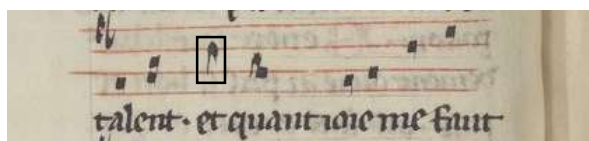 talent · et quant ioie me faut